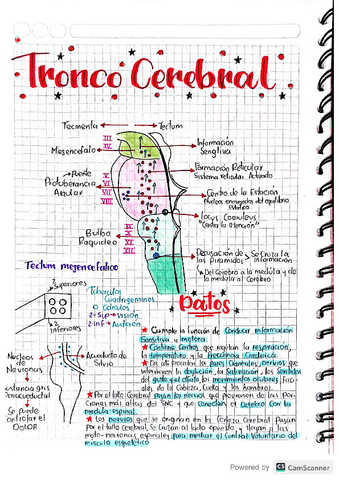 Tronco Cerebral
Tecmenta
Tectum
III
IV
Mesencefalo
Información
Sensitiva
Puente
Protuberancia
Anular
Formación Reticular
Sistema Reticular Activado
Centro de la
Nucleo encargado del equilibrio
Locus Coeruleus
"Centra la atención"
Bulbo
Raquideo
Decusación de
las Piramides
Se cruza la
información
Del Cerebro a la medula y de
la medula al Cerebro
Tectum mesencefalico
2 Superiores
Tuberculos
Cuadrigeminos
o Coliculos
2-Sup→Visión
2-Inf→Audición
2
Inferiores
Nucleos
de
Neuronas
Acueducto de
Silvio
Se puede
controlar el
Dolor
Datos
★ Cumple la función de Conducir información
Sensitiva y motora.
★ Contiene Centros que regulan la respiración,
la temperatura y la frecuencia Cardiaca.
★ Di alli los pares Craneales, nervios que
intervienen la deglución, la Salivación, los Sentidos
del gusto y el olfato, los movimientos oculares, faci-
ales, de la Cabeza, Cuello y los hombros.
★ Por el tallo Cerebral pasan los nervios que provienen de las por-
ciones mas altas del SNC y que Conectan el Cerebro Con la
medula espinal.
★ Los nervios que se originan en la Corteza Cerebral Pasan
por el tallo Cerebral, se Cruzan al lado opuesto y llegan a las
moto-neuronas espinales para mediar el Control Voluntario del
músculo esquelético
Powered by CS CamScanner